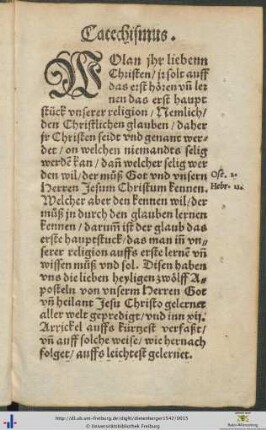 Catechismus.
WOlan jhr liebenn
Christen/ jr solt auff
das erst hören vñ ler
nen das erst haupt
stück vnserer religion/ Nemlich/
den Christlichen glauben/ daher
jr Christen seidt vnd genant wer-
det/ on welchen niemandts selig
werdē kan/ dañ welcher selig wer
den wil/ der müß Got vnd vnsern
Herren Jesum Christum kennen.
Ose. 2.
Hebr. 11.
Welcher aber den kennen wil/ der
müß jn durch den glauben lernen
kennen/ darumb ist der glaub das
erste hauptstuck/ das man iñ vn-
serer religion auffs erste lernē vñ
wissen müß vnd sol. Disen haben
vns die lieben heyligen zwölff A-
posteln von vnserm Herren Got
vñ heilant Jesu Christo gelernet
aller welt gepredigt/ vnd inn xij.
Arrickel auffs kürtzest verfaßt/
vñ auff solche weise/ wie hernach
folget/ auffs leichtest gelernet.
http://dl.ub.uni-freiburg.de/diglit/dietenberger1542/0015
© Universitätsbibliothek Freiburg
Baden-Württemberg